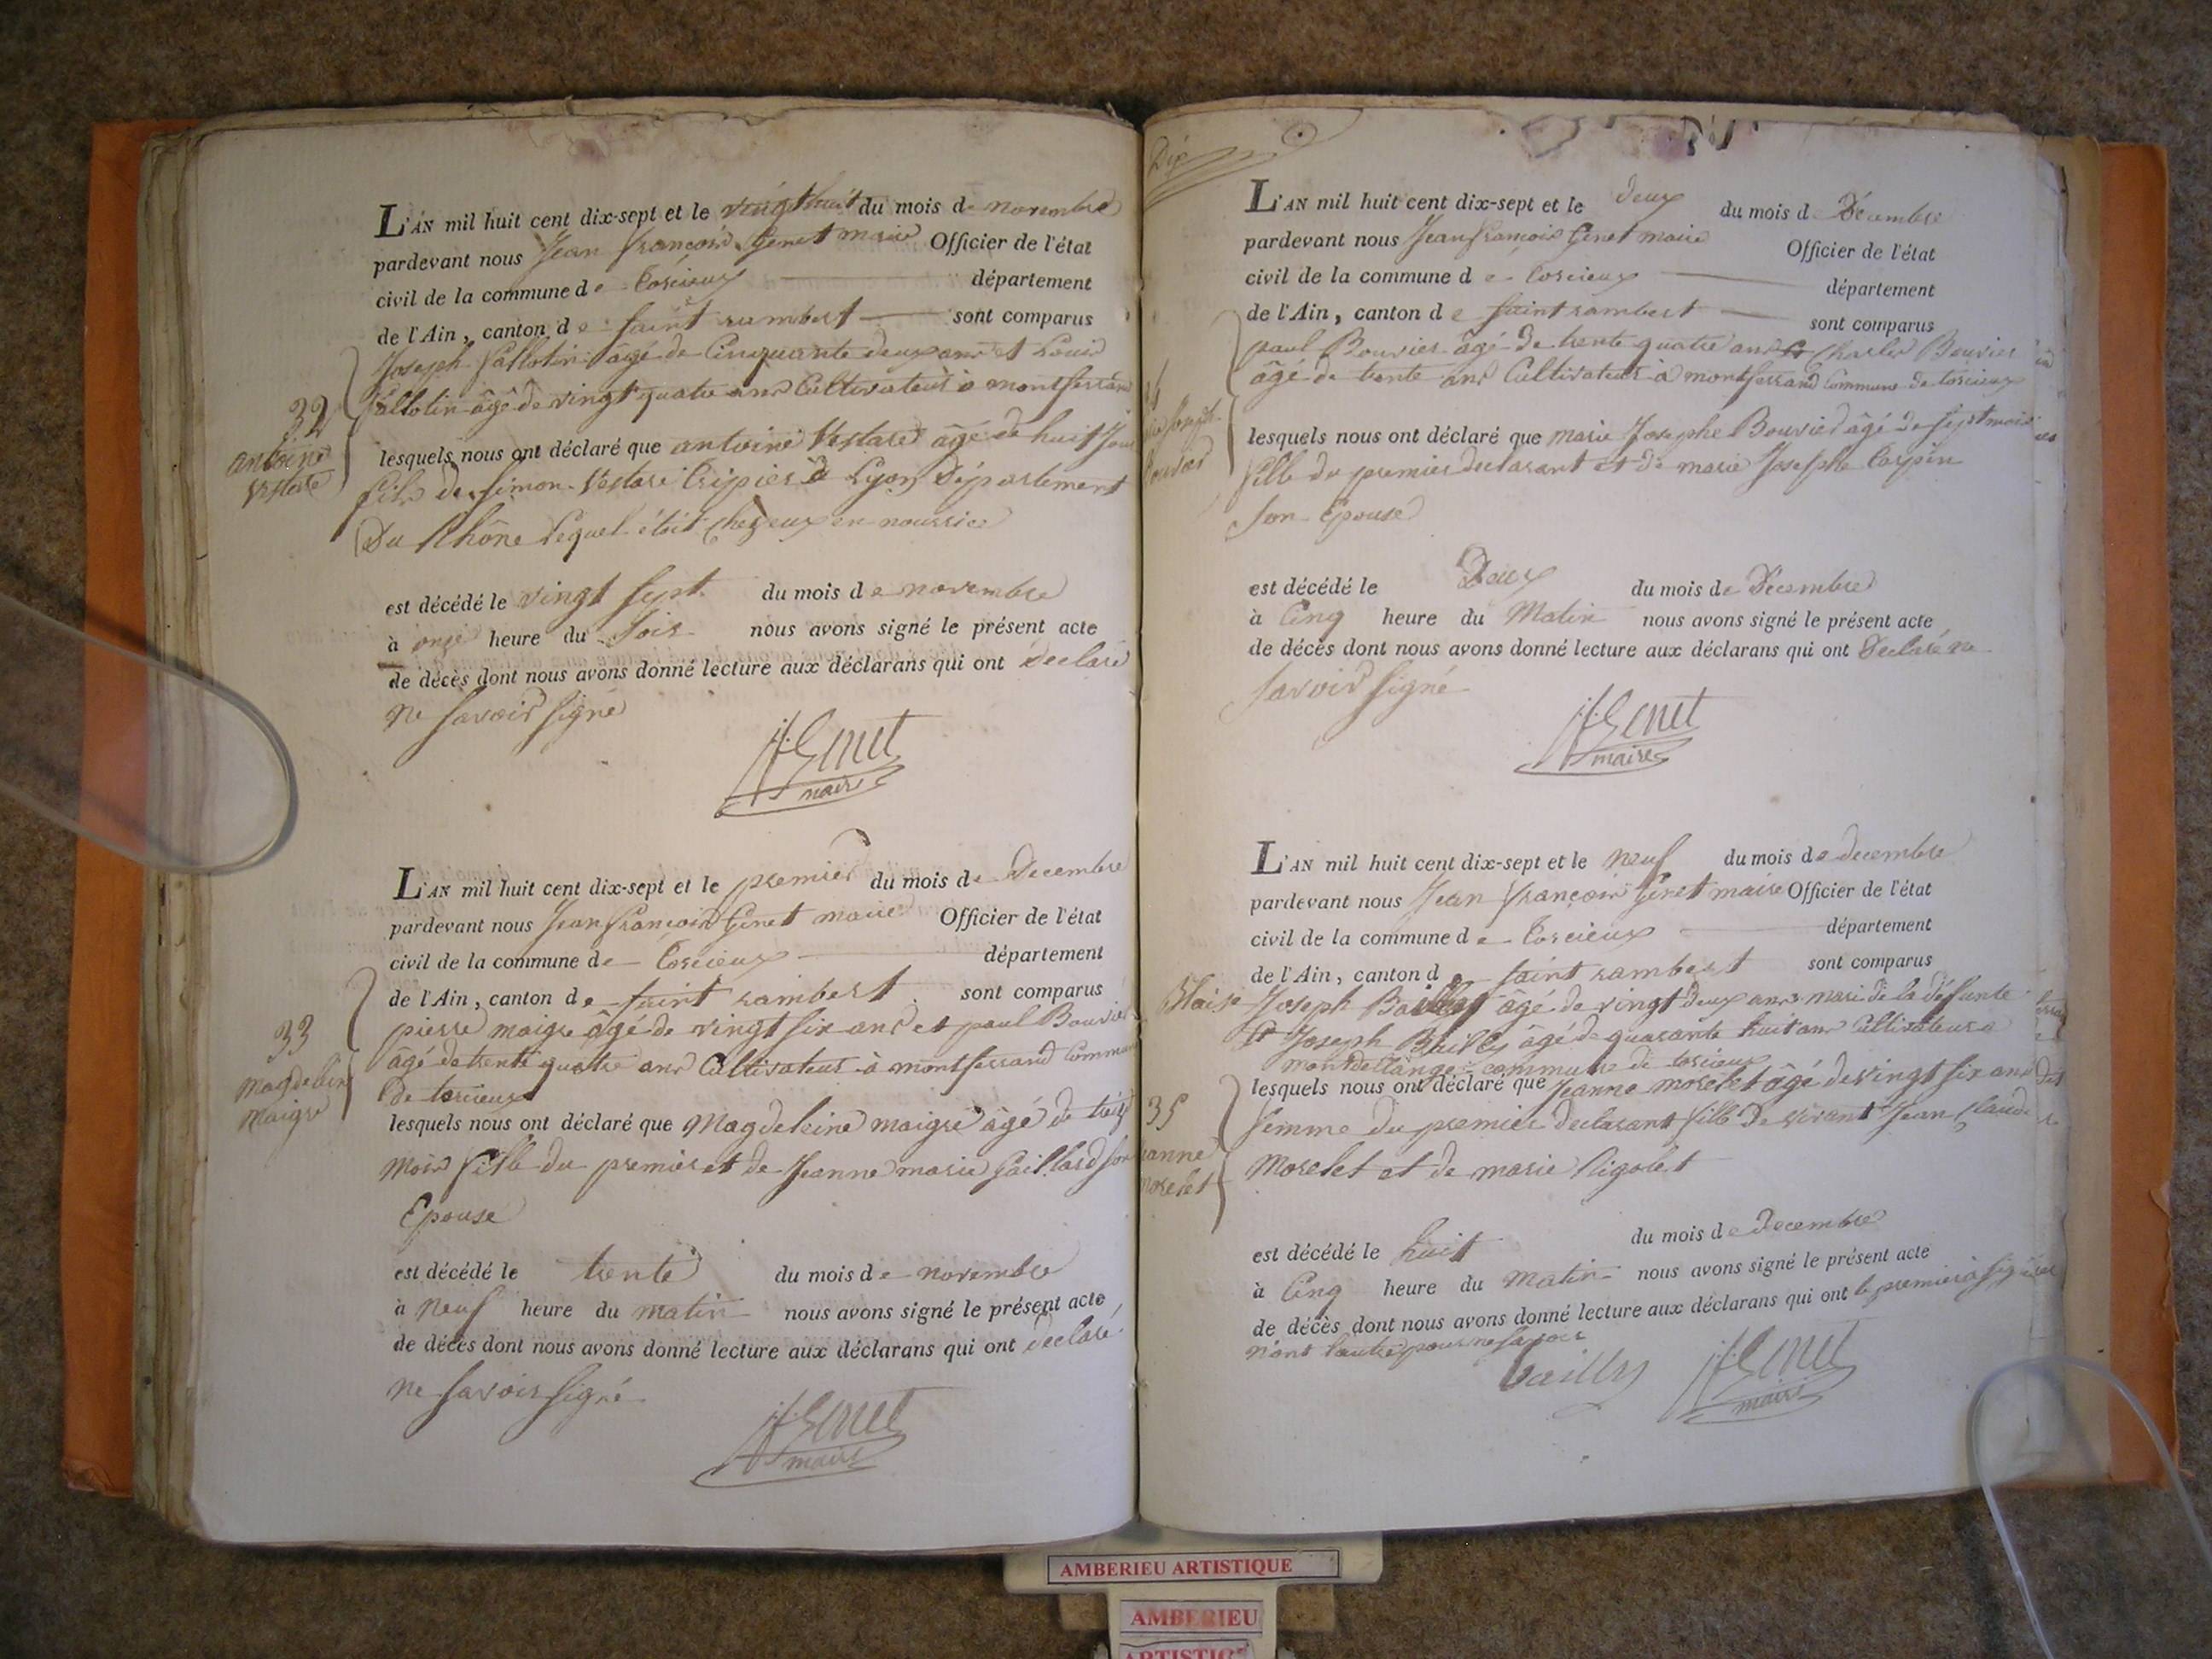 L'AN mil huit cent dix-sept et le vingt huit du mois de novembre
pardevant nous Jean françois Genet maire Officier de l'état
civil de la commune de torcieux département
de l'Ain, canton de saint rambert sont comparus
Joseph Vallotin âgé de Cinquante deux ans et Louis
Vallotin âgé de vingt quatre ans Cultivateurs à montferrand
32
antoine
Vestare
lesquels nous ont déclaré que antoine Vestare âgé de huit Jours
fils de Simon Vestare Cripier à Lyon Département
Du Rhône lequel étoit chez eux en nourrice
est décédé le vingt sept du mois de novembre
à onze heure du soir nous avons signé le présent acte
de décès dont nous avons donné lecture aux déclarans qui ont declaré
ne savoir signé
jf Genet
maire
L'AN mil huit cent dix-sept et le premier du mois de Decembre
pardevant nous Jean françois Genet maire Officier de l'état
civil de la commune de torcieux département
de l'Ain, canton de saint rambert sont comparus
pierre maigre âgé de vingt six ans et paul Bouvier
âgé de trente quatre ans Cultivateurs à montferrand Commune
de torcieux
33
magdeleine
maigre
lesquels nous ont déclaré que Magdeleine maigre âgé de trois
mois fille du premier et de Jeanne marie Gaillard son
Epouse
est décédé le trente du mois de novembre
à neuf heure du matin nous avons signé le présent acte
de décès dont nous avons donné lecture aux déclarans qui ont declaré
ne savoir signé
jf Genet
maire
Dix
L'AN mil huit cent dix-sept et le deux du mois de Décembre
pardevant nous Jean françois Genet maire Officier de l'état
civil de la commune de torcieux département
de l'Ain, canton de saint rambert sont comparus
paul Bouvier âgé de trente quatre ans et Charles Bouvier
âgé de trente ans Cultivateurs à montferrand Commune de torcieux
lesquels nous ont déclaré que marie Josephe Bouvier âgé de sept mois
fille du premier declarant et de marie Josephe Carpin
son Epouse
est décédé le Deux du mois de Décembre
à Cinq heure du Matin nous avons signé le présent acte
de décès dont nous avons donné lecture aux déclarans qui ont Declaré ne
savoir signé
jf Genet
maire
L'AN mil huit cent dix-sept et le neuf du mois de decembre
pardevant nous Jean françois Genet maire Officier de l'état
civil de la commune de torcieux département
de l'Ain, canton de saint rambert sont comparus
Blaise Joseph Bailly âgé de vingt deux ans mari de la défunte
et Joseph Bailly âgé de quarante huit ans Cultivateurs a
montdellange commune de torcieux
35
Jeanne
morelet
lesquels nous ont déclaré que Jeanne morelet âgé de vingt six ans
femme du premier Declarant fille De vivant Jean Claude
Morelet et de marie Rigolet
est décédé le huit du mois de Decembre
à Cinq heure du matin nous avons signé le présent acte
de décès dont nous avons donné lecture aux déclarans qui ont le premier à signé
non l'autre pour ne savoir
bailly jf Genet
maire
AMBERIEU ARTISTIQUE
AMBERIEU
ARTISTIQUE